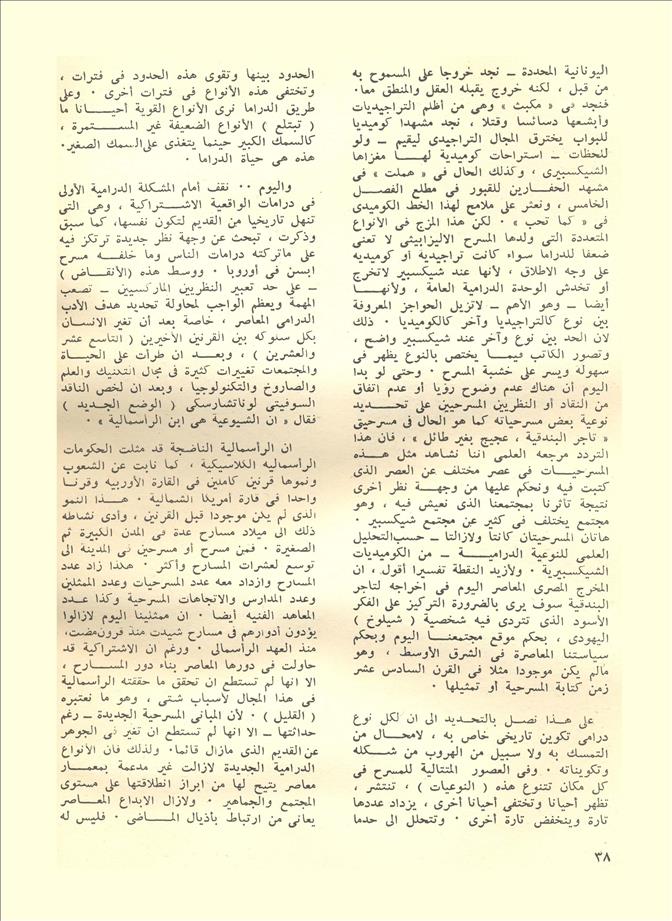 اليونانية المحددة ــ نجد خروجا على المسموح به
من قبل ، لكنه خروج يقبله العقل والمنطق معا ٠
فنجد فى « مكبث » وهى من أظلم التراجيديات
وأبشعها دسائسا وقتلا ، نجد مشهدا كوميديا
للبواب يخترق المجال التراجيدى ليقيم ــ ولو
للحظات ــ استراحات كوميدية لهـــا مغزاها
الشيكسبيرى ، وكذلك الحال فى « هملت » فى
مشهد الحفــارين للقبور فى مطلع الفصـــل
الخامس ، ونعثر على ملامح لهذا الخط الكوميدى
فى « كما تحب » ٠ لكن هذا المزج فى الأنواع
المتعددة التى ولدها المسرح الاليزابيثى لا تعنى
ضعفا للدراما سواء كانت تراجيدية أو كوميديه
على وجه الاطلاق ، لأنها عند شيكسبير لاتخرج
أو تخدش الوحدة الدرامية العامة ، ولأنهـــا
أيضا ــ وهو الأهم ــ لاتزيل الحواجز المعروفة
بين نوع كالتراجيديا وآخر كالكوميديا ٠ ذلك
لان الحد بين نوع وآخر عند شيكسبير واضح ،
وتصور الكاتب فيمـــا يختص بالنوع يظهر فى
سهوله ويسر على خشبة المسرح ٠ وحتى لو بدا
اليوم أن هناك عدم وضوح رؤيا أو عدم اتفاق
من النقاد أو النظريين المسرحيين على تحـــديد
نوعية بعض مسرحياته كما هو الحال فى مسرحيتى
« تاجر البندقية ، عجيج بغير طائل » ، فان هذا
التردد مرجعه العلمى اننا نشاهد مثل هـــذه
المسرحيـــات فى عصر مختلف عن العصر الذى
كتبت فيه ونحكم عليها من وجهـــة نظر أخرى
نتيجة تأثرنا بمجتمعنا الذى نعيش فيه ، وهو
مجتمع يختلف فى كثير عن مجتمع شيكسبير ٠
هاتان المسرحيتان كانتا ولازالتا ــ حسب التحليل
العلمى للنوعية الدراميـــة ــ من الكوميديات
الشيكسبيرية ٠ ولازيد النقطة تفسيرا أقول ، ان
المخرج المصرى المعاصر اليوم فى اخراجه لتاجر
البندقية سوف يرى بالضرورة التركيز على الفكر
الأسود الذى تتردى فيه شخصية ( شيلوخ )
اليهودى ، بحكم موقع مجتمعنـــا اليوم وبحكم
سياستنا المعاصرة فى الشرق الأوسط ، وهو
مالم يكن موجودا مثلا فى القرن السادس عشر
زمن كتابة المسرحية أو تمثيلها ٠
على هـــذا نصـــل بالتحـــديد الى ان لكل نوع
درامى تكوين تاريخى خاص به ، لامحـــال من
التمسك به ولا سبيل من الهروب من شـــكله
وتكويناته ٠ وفى العصور المتتالية للمسرح فى
كل مكان تتنوع هذه ( النوعيات ) ، تنتشر ،
تظهر أحيانا وتختفى أحيانا أخرى ، يزداد عددها
تارة وينخفض تارة أخرى ٠ وتتحلل الى حدما
الحدود بينها وتقوى هذه الحدود فى فترات ،
وتختفى هذه الأنواع فى فترات أخرى ٠ وعلى
طريق الدراما نرى الأنواع القوية أحيـــانا ما
( تبتلع ) الأنواع الضعيفة غير المســـتمرة ،
كالسمك الكبير حينما يتغذى على السمك الصغير٠
هذه هى حياة الدراما ٠
واليوم ٠٠ نقف أمام المشكلة الدرامية الأولى
فى درامات الواقعية الاشـــتراكية ، وهى التى
تنهل تاريخيا من القديم لتكون نفسها، كما سبق
وذكرت ، تبحث عن وجهة نظر جديدة ترتكز فيه
على ماتركته درامات الناس وما خلفـــه مسرح
ابسن فى أوروبا ٠ ووسط هذه (الأنقـــاض )
ــ على حد تعبير النظريين الماركسيين ــ تصعب
المهمة ويعظم الواجب لمحاولة تحديد هدف الأدب
الدرامى المعاصر ، خاصة بعد أن تغير الانســـان
بكل سلوكه بين القرنين الأخيرين ( التاسع عشر
والعشرين ) ، وبعـــد ان طرأت على الحيـــاة
والمجتمعات تغييرات كثيرة فى مجال التكنيك والعلم
والصاروخ والتكنولوجيا ، وبعد ان لخص الناقد
السوفيتى لوناتشارسكى ( الوضع الجـــديد )
فقال « ان الشيوعية هى ابن الرأسمالية » ٠
ان الرأسمالية الناضجة قد مثلت الحكومات
الرأسماليه الكلاسيكية ، كما نابت عن الشعوب
ونموها قرنين كاملين فى القارة الأوربيه وقرنـــا
واحدا فى قارة أمريكا الشمالية ٠ هـــذا النمو
الذى لم يكن موجودا قبل القرنين ، وأدى نشاطه
ذلك الى ميلاد مسارح عدة فى المدن الكبيرة ثم
الصغيرة ٠ فمن مسرح أو مسرحين فى المدينة الى
توسع لعشرات المسارح وأكثر ٠ هكذا زاد عدد
المسارح وازداد معه عدد المسرحيات وعدد الممثلين
وعدد المدارس والاتجاهات المسرحية وكذا عـــدد
المعاهد الفنيه أيضا ٠ ان ممثلينا اليوم لازالوا
يؤدون أدوارهم فى مسارح شيدت منذ قرون مضت،
منذ العهد الرأسمالى ٠ ورغم ان الاشتراكية قد
حاولت فى دورها المعاصر بناء دور المســـارح ،
الا انها لم تستطع ان تحقق ما حققته الرأسمالية
فى هذا المجال لأسباب شتى ، وهو ما نعتبره
( القليل ) ٠ لأن المبانى المسرحية الجديدة ــ رغم
حداثتها ــ الا انها لم تستطع ان تغير فى الجوهر
عن القديم الذى مازال قائما٠ ولذلك فان الأنواع
الدرامية الجديدة لازالت غير مدعمة بمعمـــار
معاصر يتيح لها من ابراز انطلاقتها على مستوى
المجتمع والجماهير ٠ ولازال الابداع المعـــاصر
يعانى من ارتباط بأذيال المـــاضى ٠ فليس له
٣٨